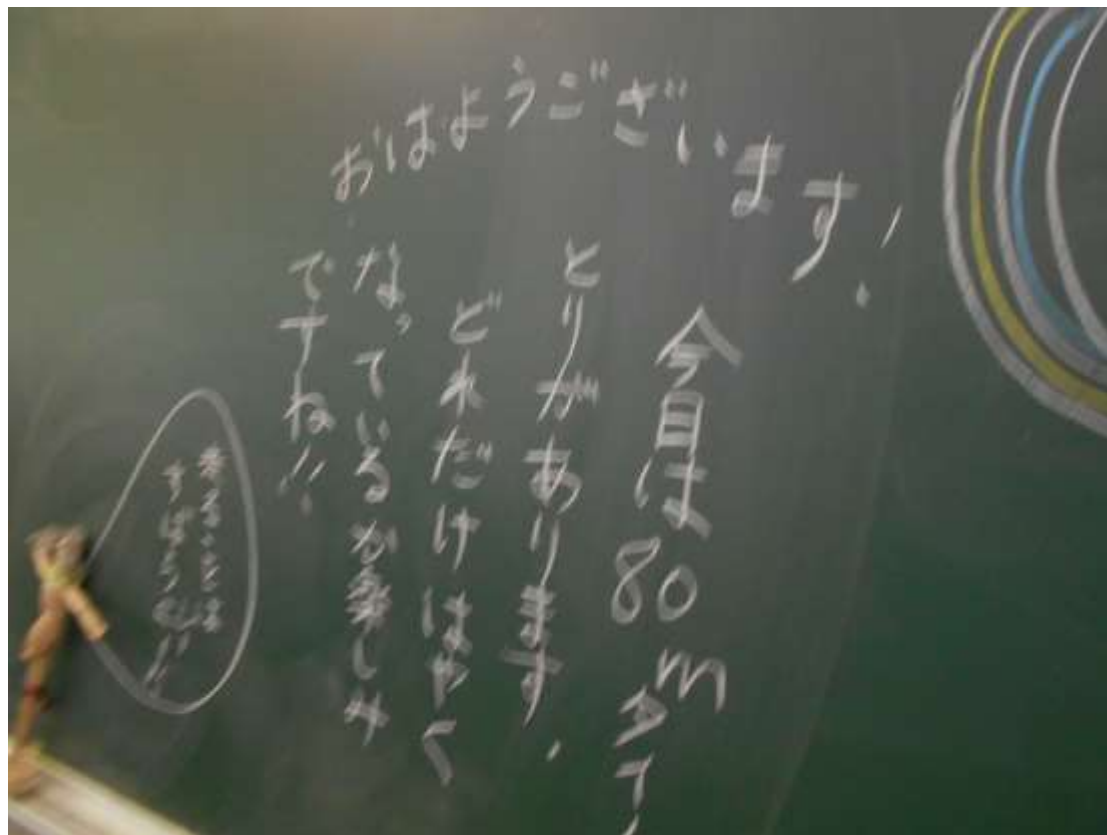 おはようございます!
今日は80mタイ
とりがあります.
どれだけはやく
なっているか楽しみ
ですね!!